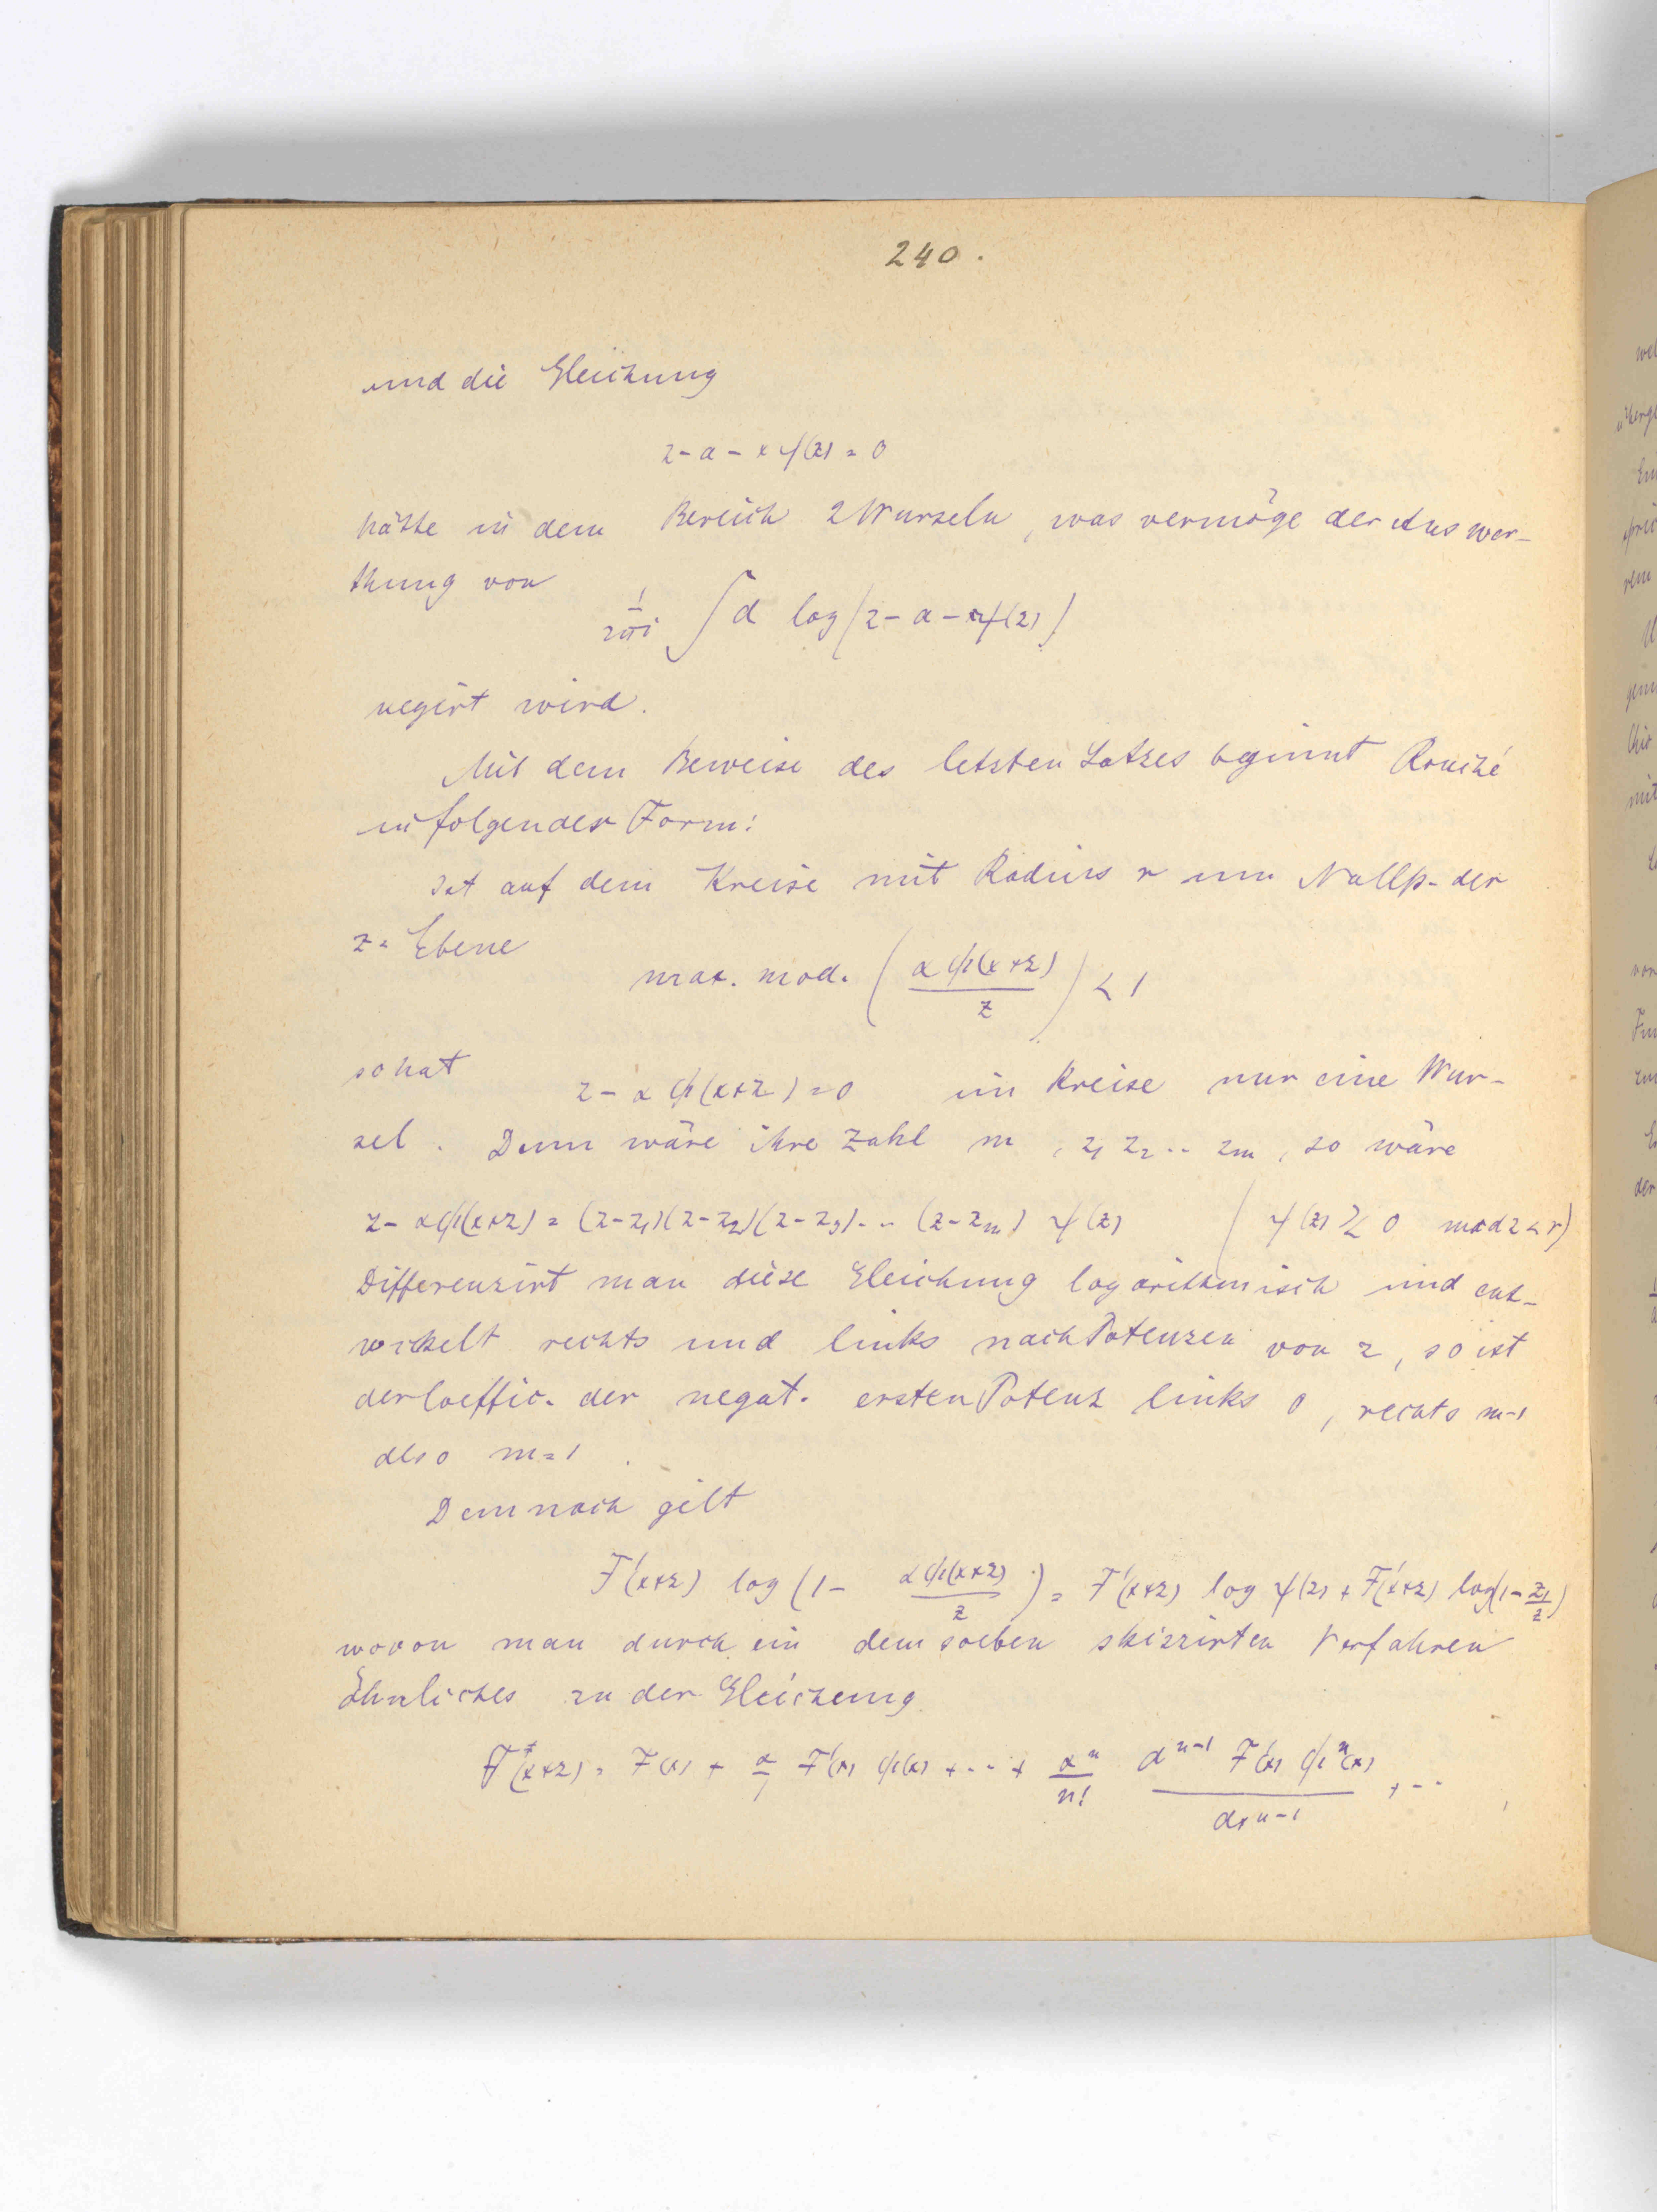 240.
und die Gleichung
z - a - x f(z) = 0
hätte in dem Bereich 2 Wurzeln, was vermöge der Auswer-
thung von
1/2πi ∫ d log(z - a - x f(z))
negirt wird.
Mit dem Beweise des letzten Satzes beginnt Rouché
in folgender Form:
Ist auf dem Kreise mit Radius r um Nullp. der
z-Ebene
max. mod. (αφ(x+z)/z) < 1
so hat
z - αφ(x+z) = 0 im Kreise nur eine Wur-
zel. Denn wäre ihre Zahl m, z₁ z₂ .. zm, so wäre
z - αφ(x+z) = (z-z₁)(z-z₂)(z-z₃)... (z-zm) ψ(z) (ψ(z) ≷ 0 mod z < r)
Differenzirt man diese Gleichung logarithmisch und ent-
wickelt rechts und links nach Potenzen von z, so ist
der Coeffic. der negat. ersten Potenz links 0, rechts m-1
also m=1.
Demnach gilt
F'(x+z) log(1 - αφ(x+z)/z) = F'(x+z) log ψ(z) + F'(x+z) log(1 - z₁/z)
wovon man durch ein dem soeben skizzirten Verfahren
Ähnliches zu der Gleichung
F(x+z) = F(x) + α/1 F'(x) φ(x) + ... + αⁿ/n! dⁿ⁻¹ F'(x) φⁿ(x)/dxⁿ⁻¹ + ..